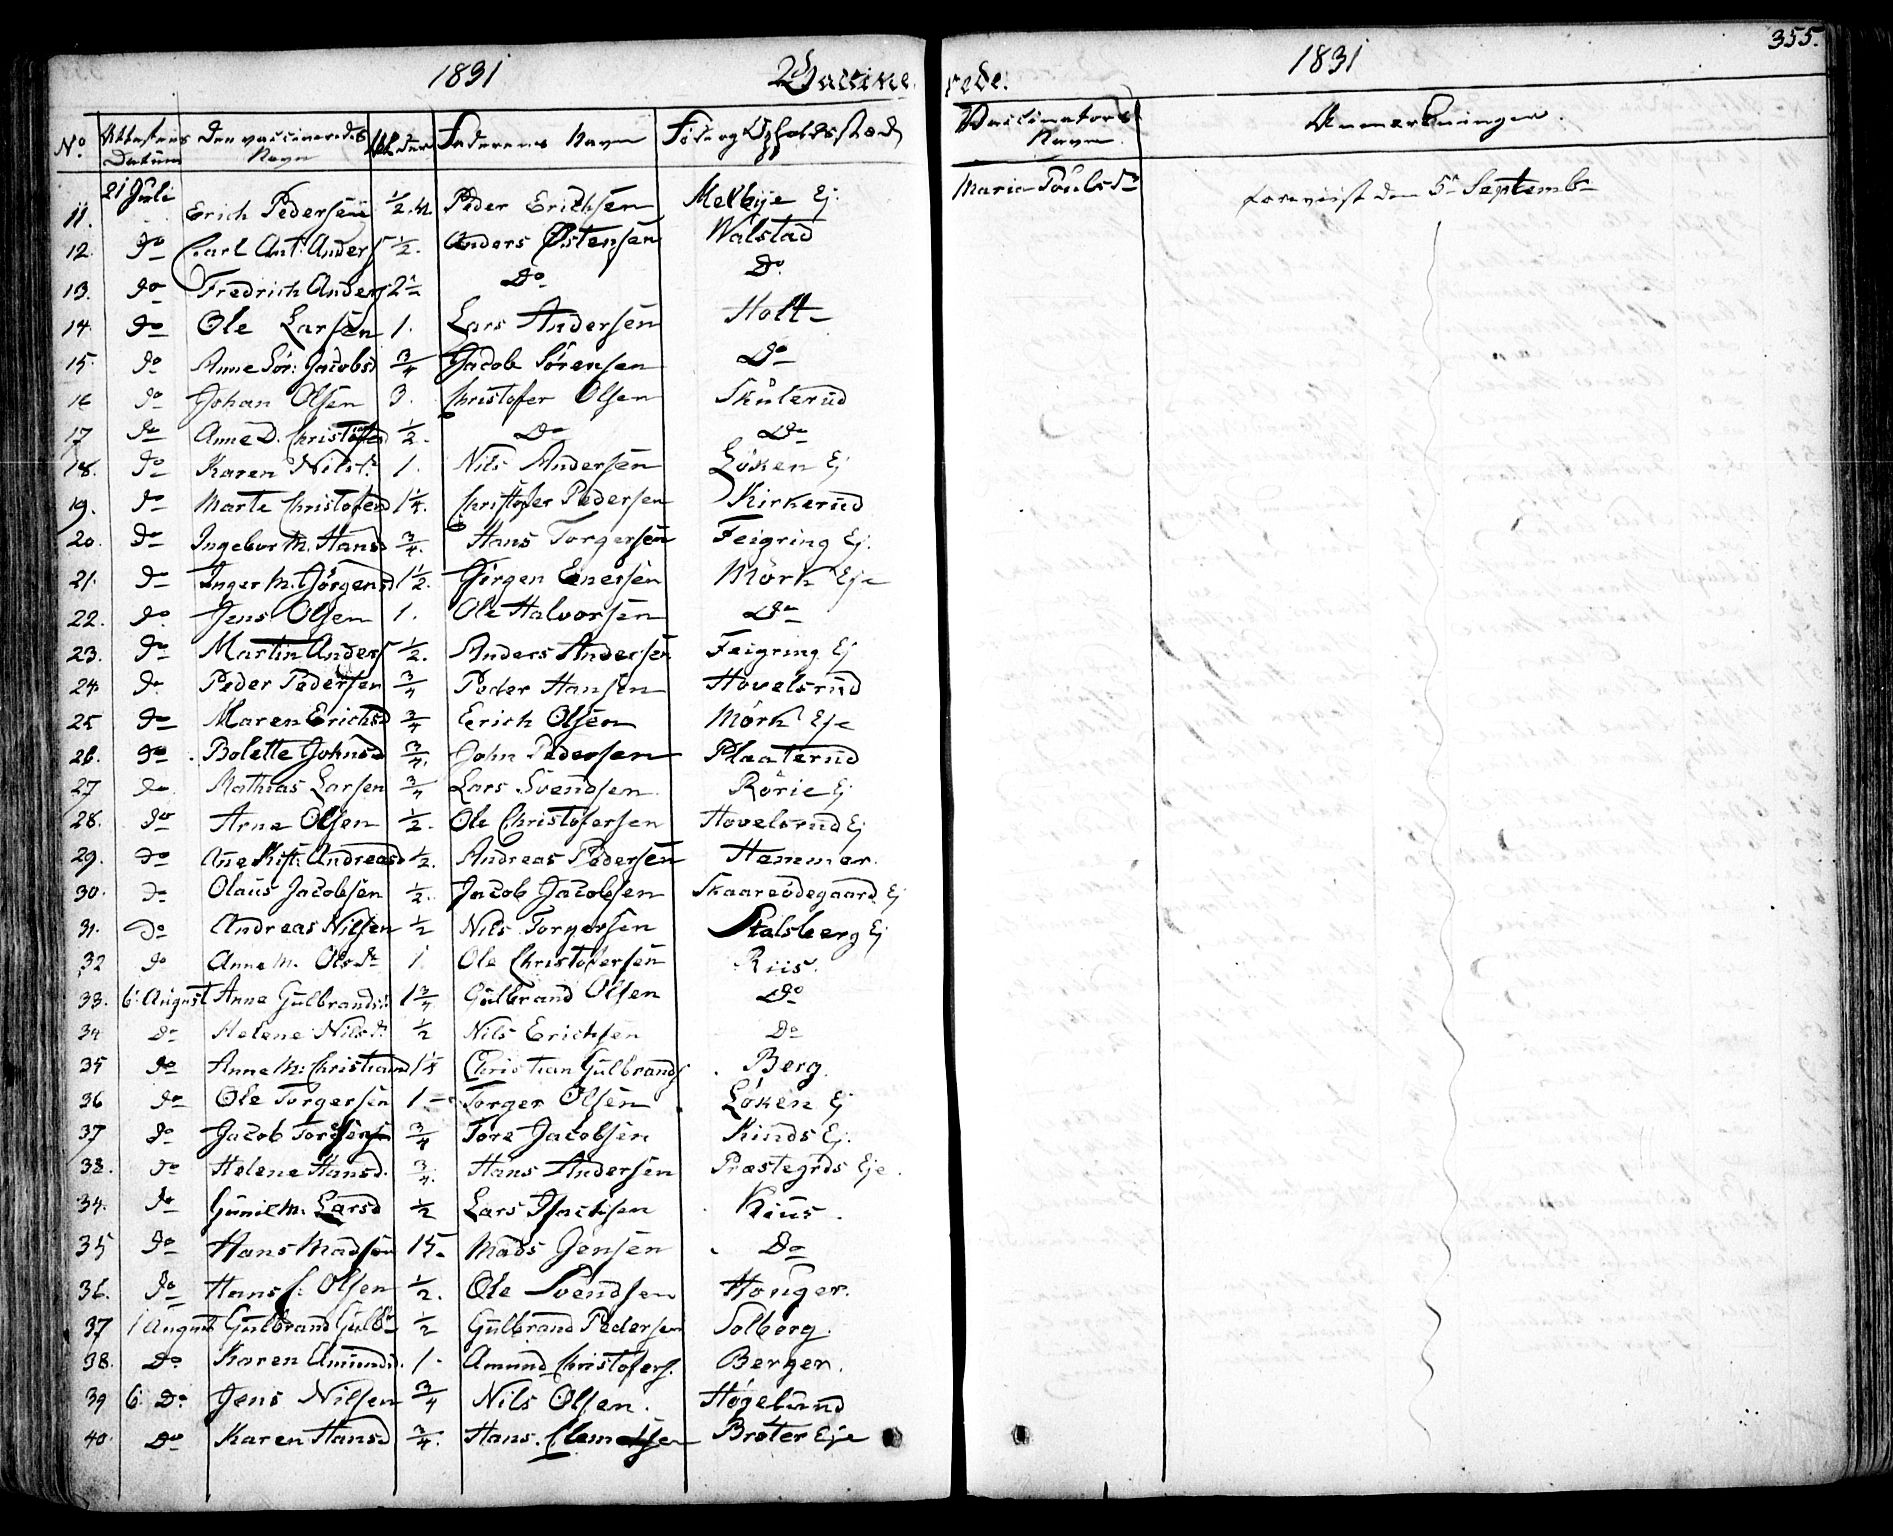 355.
1831 Vaccine rede. 1831
No. Attestens Datum Den vaccineredes Navn Alder Faderens Navn Føde og Opholdssted Vaccinators Navn Anmerkninger.
11. 21 Juli Erich Pedersen ½ Peder Erichsen Melbye Ej. Maria Poulsdr foreviist den 5te Septembr
12. do Carl Ant. Anders ½. Anders Østensen Walstad
13. do Fredrich Anders 2½ Do Do
14. do Ole Larsen 1. Lars Andersen Holt
15. do Anne Sør. Jacobsd ¾ Jacob Sørensen Do
16 do Johan Olsen 3. Christofer Olsen Skulerud
17 do Anne D. Christofersd ½. Do Do
18. do Karen Nilsd. 1. Nils Andersen Løken Ej
19. do Marte Christofersd 1¼. Christofer Pedersen Kirkerud
20. do Ingebor M. Hansd ¾. Hans Torgersen Feigring Ej.
21. do Inger M. Jørgensd 1½. Jørgen Enersen Mørk Eje
22. do Jens Olsen 1. Ole Halvorsen Do
23. do Martin Anders ½. Anders Andersen Feigring Ej
24 do Peder Pedersen ¾ Peder Hansen Hovelsrud
25 do Maren Erichsd ¾ Erich Olsen Mørk Eje
26. do Bolette Johnsd ¾. John Pedersen Plaaterud
27 do Mathias Larsen ¾ Lars Svendsen Rørie Ej
28. do Arne Olsen ½. Ole Christofersen Hovelsrud Ej
29. do Ane Kist. Andreasd ½. Andreas Pedersen Hammer.
30. do Olaus Jacobsen ½. Jacob Jacobsen Skaareødegaard Ej
31. do Andreas Nilsen ½ Nils Torgersen Stalsberg Ej
32 do Anne M. Olsdr 1. Ole Christofersen Riis.
33. 6. August Anne Gulbrandsd 1¾ Gulbrand Olsen Do
34 do Helene Nilsd. ½ Nils Erichsen Do
35 do Anne M. Christiansd 1¼ Christian Gulbrands Berg.
36 do Ole Torgersen 1 Torger Olsen Løken Ej
37 do Jacob Toresen ¾ Tore Jacobsen Kinds Ej.
38. do Helene Hansd. ¾. Hans Andersen Præstegrds Eje.
34. do Gunil M. Larsd ½ Lars Isachsen Kius.
35 do Hans Madsen 15. Mads Jensen Do
36. do Hans Olsen ½. Ole Svendsen Honger.
37 1 August Gulbrand Gulbr ½ Gulbrand Pedersen Solberg.
38. Do Karen Amundsd. 1. Amund Christofers. Berger.
39 6. Do Jens Nilsen ¾ Nils Olsen. Høgebrund
40. Do Karen Hansd ¾. Hans Clemetsen Brøter Eje